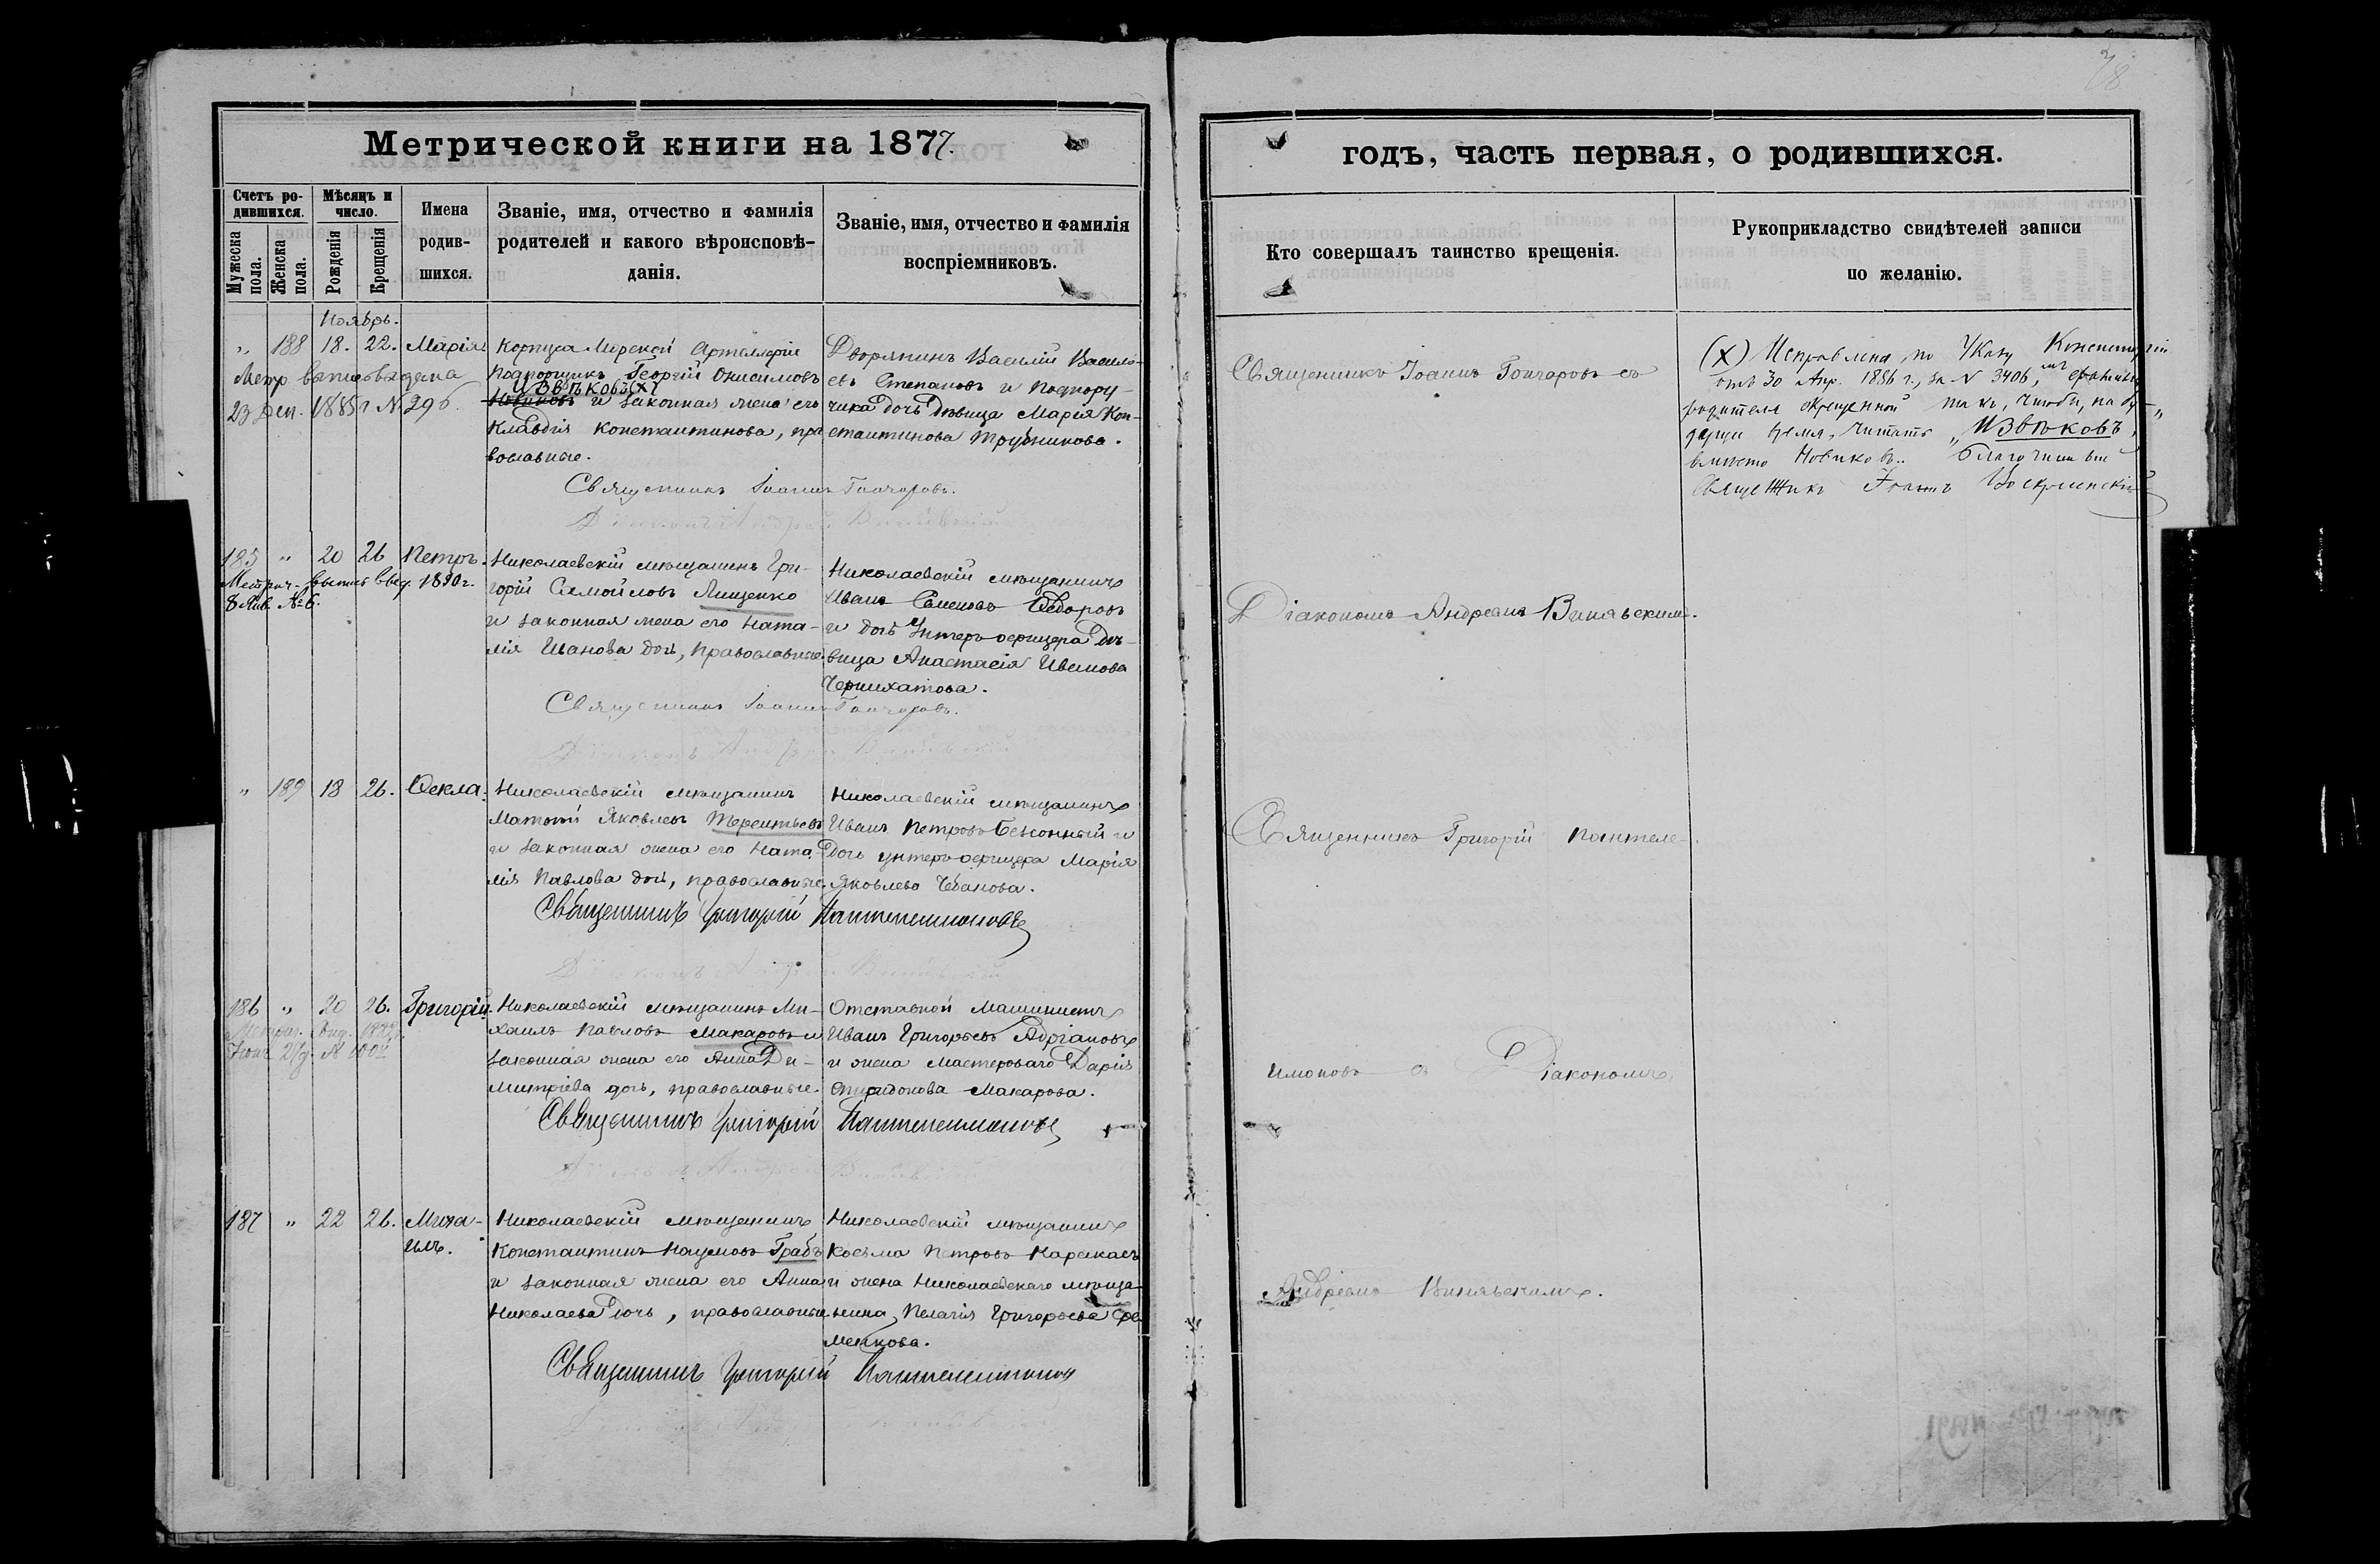 Метрической книги на 1877.
Счетъ ро-
дившихся.
Мужеска
пола.
Женска
пола.
Мѣсяцъ и
число.
Рожденія
Крещенія
Имена
родив-
шихся.
Званіе, имя, отчество и фамилія
родителей и какого вѣроисповѣ-
данія.
Званіе, имя, отчество и фамилія
воспріемниковъ.
Ноябрь.
" 188 18. 22. Марія
Метр. выпись выдана
23 Дек. 1885 г. № 296.
Корпуса Морской Артиллеріи
Подпорщикъ Георгій Онисимовъ
Извѣковъ (х)
Новиковъ и законная жена его
Клавдія Константинова, пра
вославные.
Дворянинъ Василій Василь-
евъ Степановъ и подпору-
чика дочь дѣвица Марія Кон-
стантинова Трубникова.
Священникъ Іоаннъ Гончаровъ.
Діаконъ Андрей
185 " 20 26 Петръ.
Метрич. выпись выд. 1890 г.
8 Янв. № 6.
Николаевскій мѣщанинъ Гри-
горій Самойловъ Лищенко
и законная жена его Ната-
лія Иванова дочь, православные.
Николаевскій мѣщанинъ
Иванъ Семеновъ Ѳедоровъ
и дочь Унтеръ-офицера дѣ-
вица Анастасія Иванова
Священникъ Іоаннъ Гончаровъ.
Діаконъ Андрей
" 189 18 26. Ѳекла.
Николаевскій мѣщанинъ
Матѳій Яковлевъ Терентьевъ
и законная жена его Ната-
лія Павлова дочь, православные.
Николаевскій мѣщанинъ
Иванъ Петровъ и
дочь унтеръ-офицера Марія
Яковлева Чебанова.
Священникъ Григорій Пантелеимоновъ
Діаконъ Андрей
186 " 20 26. Григорій.
Николаевскій мѣщанинъ Ми-
хаилъ Павловъ Макаровъ и
законная жена его Анна Ди-
митріева дочь, православные.
Отставной Машинистъ
Иванъ Григорьевъ Адріановъ
и жена мастероваго Дарія
Спиридонова Макарова.
Священникъ Григорій Пантелеимоновъ
Діаконъ Андрей
187 " 22 26. Миха-
илъ.
Николаевскій мѣщанинъ
Константинъ Наумовъ Грабъ
и законная жена его Анна
Николаева дочь, православные
Николаевскій мѣщанинъ
Косьма Петровъ
и жена Николаевскаго мѣща-
нина, Пелагія Григорьева
менкова.
Священникъ Григорій Пантелеимоновъ
годъ, часть первая, о родившихся.
Кто совершалъ таинство крещенія.
Рукоприкладство свидѣтелей записи
по желанію.
Священникъ Іоаннъ Гончаровъ съ
Діакономъ Андреемъ Винявскимъ.
Священникъ Григорій Пантеле-
имоновъ съ Діакономъ
Андреемъ Винявскимъ.
(х) Исправлена, по Указу Консисторіи
отъ 30 Апр. 1886 г., за № 3406,
родителя крещенной такъ, чтобы, на бу-
дущее время, читать „Извѣковъ",
вмѣсто Новиковъ. Благочинный
Священникъ Іоаннъ Воскресенскій